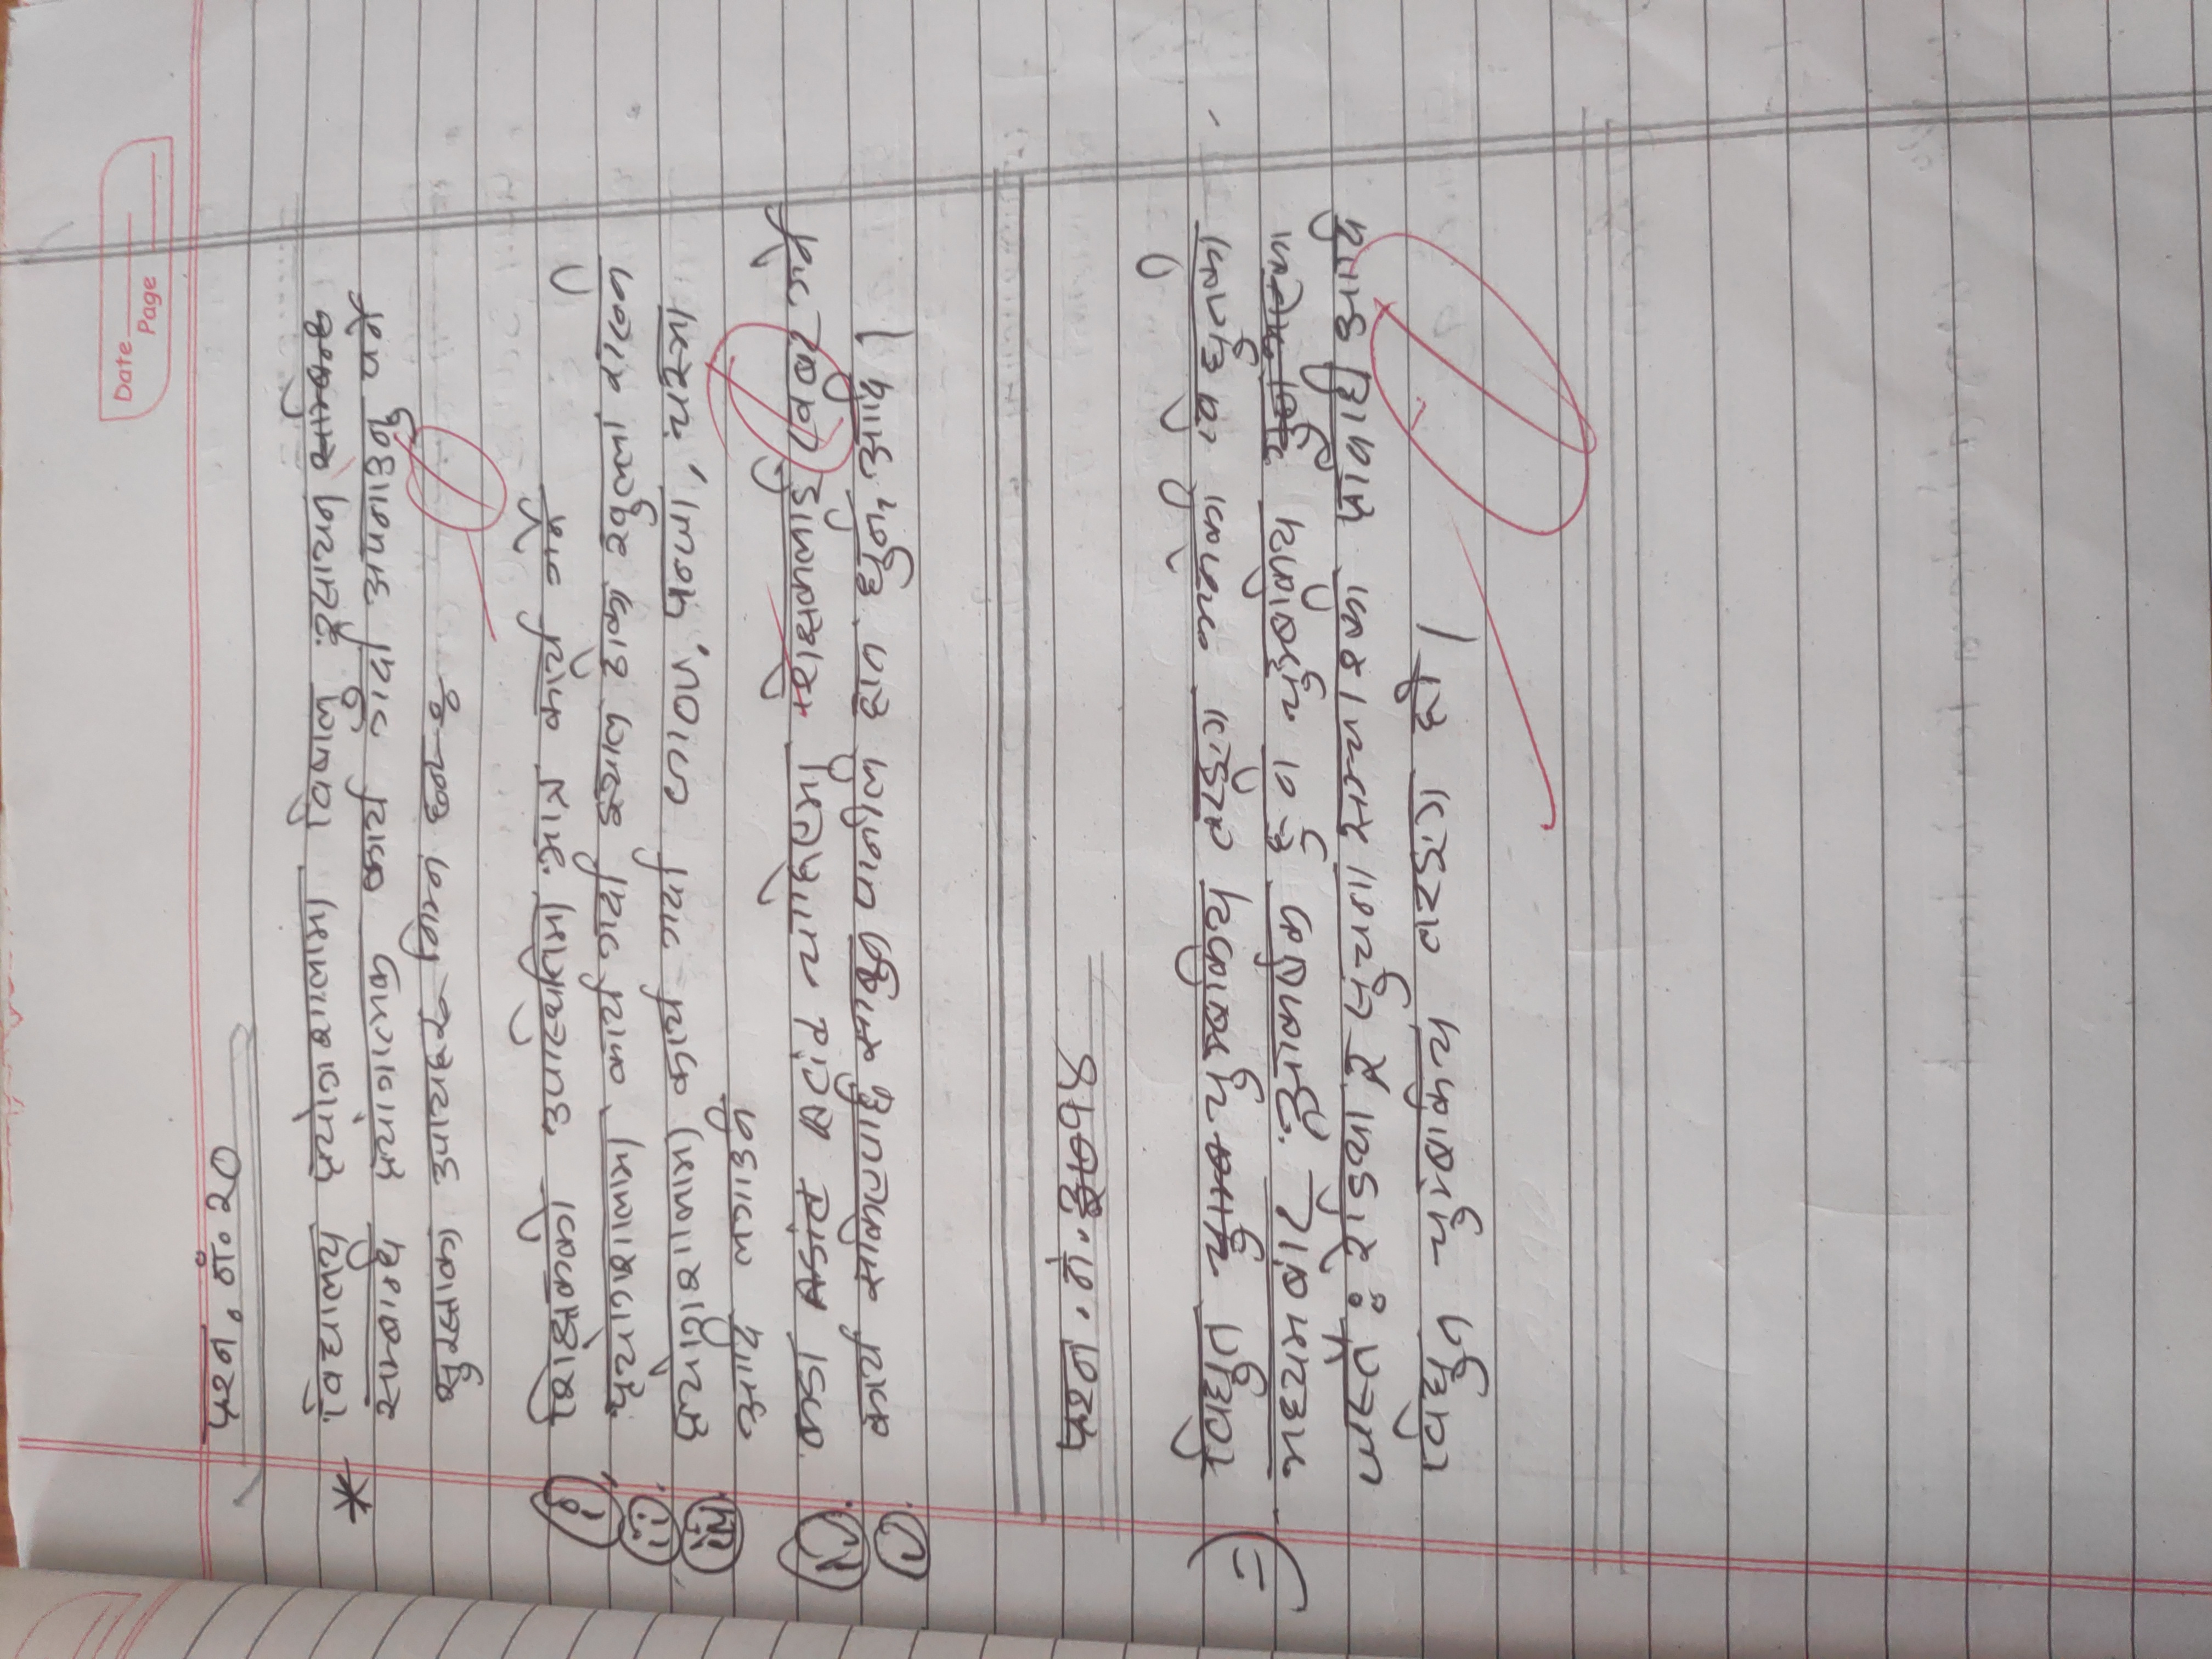 Date
Page
प्रश्न. नं. २०
* विद्यालय प्रयोगशालामा विषालु रसायन सम्बिन्ध
सम्बान्ध प्रयोगात्मक कार्य गर्दा अपनाउनु पर्ने
सुरक्षाका उपायहरू निम्न छन्ः
(i). शिक्षकको उपस्थितिमा मात्र कार्य गर्ने
(ii). प्रयोगशालामा कार्य गर्दा झ्याल ढोका खुल्ला राख्ने
(iii). प्रयोगशालामा कार्य गर्दा पन्जा, चस्मा
आदि लगाउने
(iv). कडा चाहिएमा शिक्षकलाई खबर गर्ने
(v). कार्य सकिएपछि साबुन पानीले हात धुने, आदि।
प्रश्न. नं. १४
=) विद्युत चुम्ब चुम्बकिय तरङ्ग भनेको विद्युतको
मध्यमबाट आकर्षक हुने चुम्बकिय
जस्तै: रेडियो र सुचना सम्चारको आदि
विद्युत चुम्बकिय तरङ्ग हो।